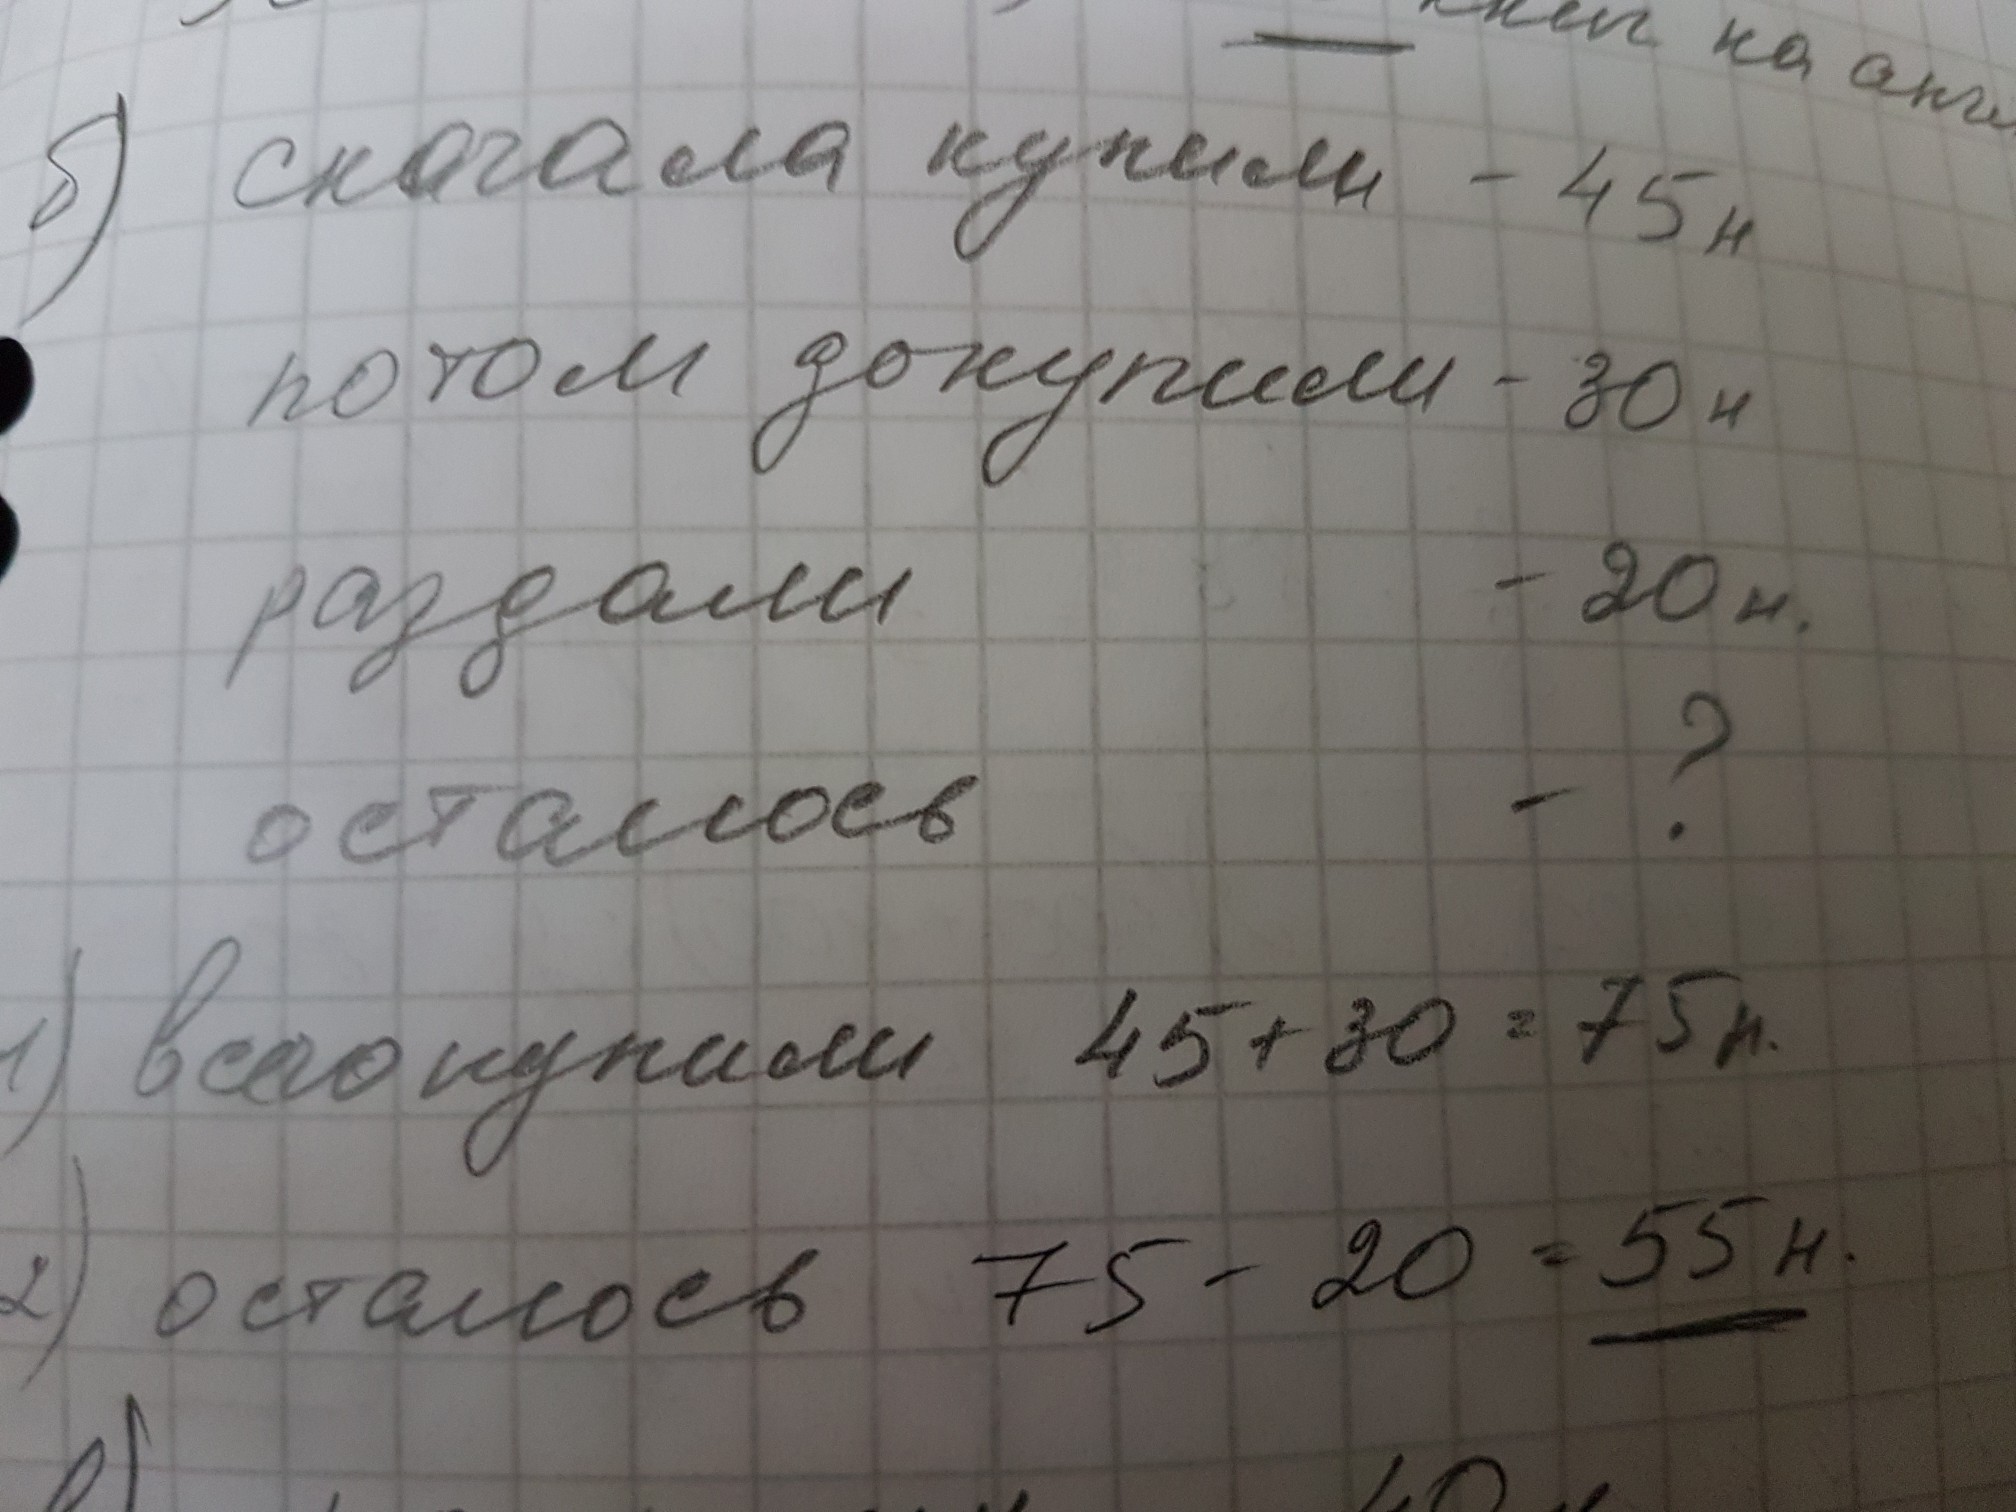 книг на англ
б) сначала купили - 45н
потом докупили - 30н
раздали - 20н.
осталось - ?
1) всего купили 45+30=75н.
2) осталось 75-20=55н.
в)